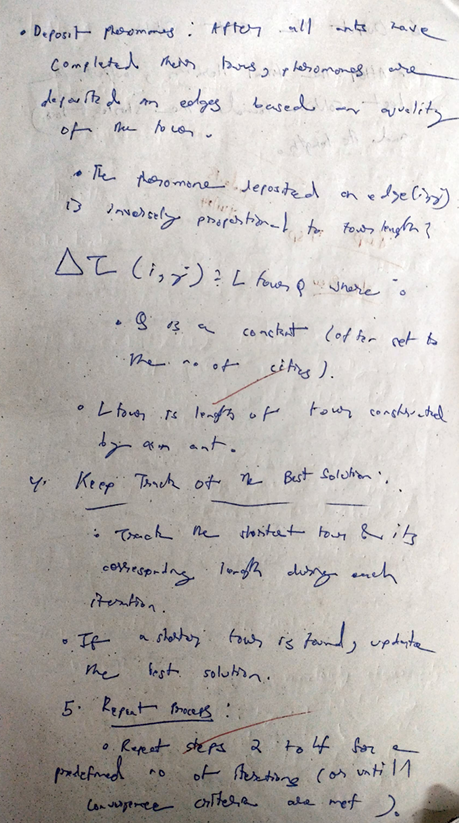 • Deposit pheromones: After all ants have
completed their tours, pheromones are
deposited on edges based on quality
of the tour.
• The pheromone deposited on edge (i,j)
is inversely proportional to tour length:
Δτ (i,j) = L tour Q where :
• Q is a constant (often set to
the no of cities).
• L tour is length of tour constructed
by an ant.
4. Keep Track of the Best Solution:
• Track the shortest tour & its
corresponding length during each
iteration.
• If a shorter tour is found, update
the best solution.
5. Repeat Process :
• Repeat steps 2 to 4 for a
predefined no of iterations (or until
convergence criteria are met).